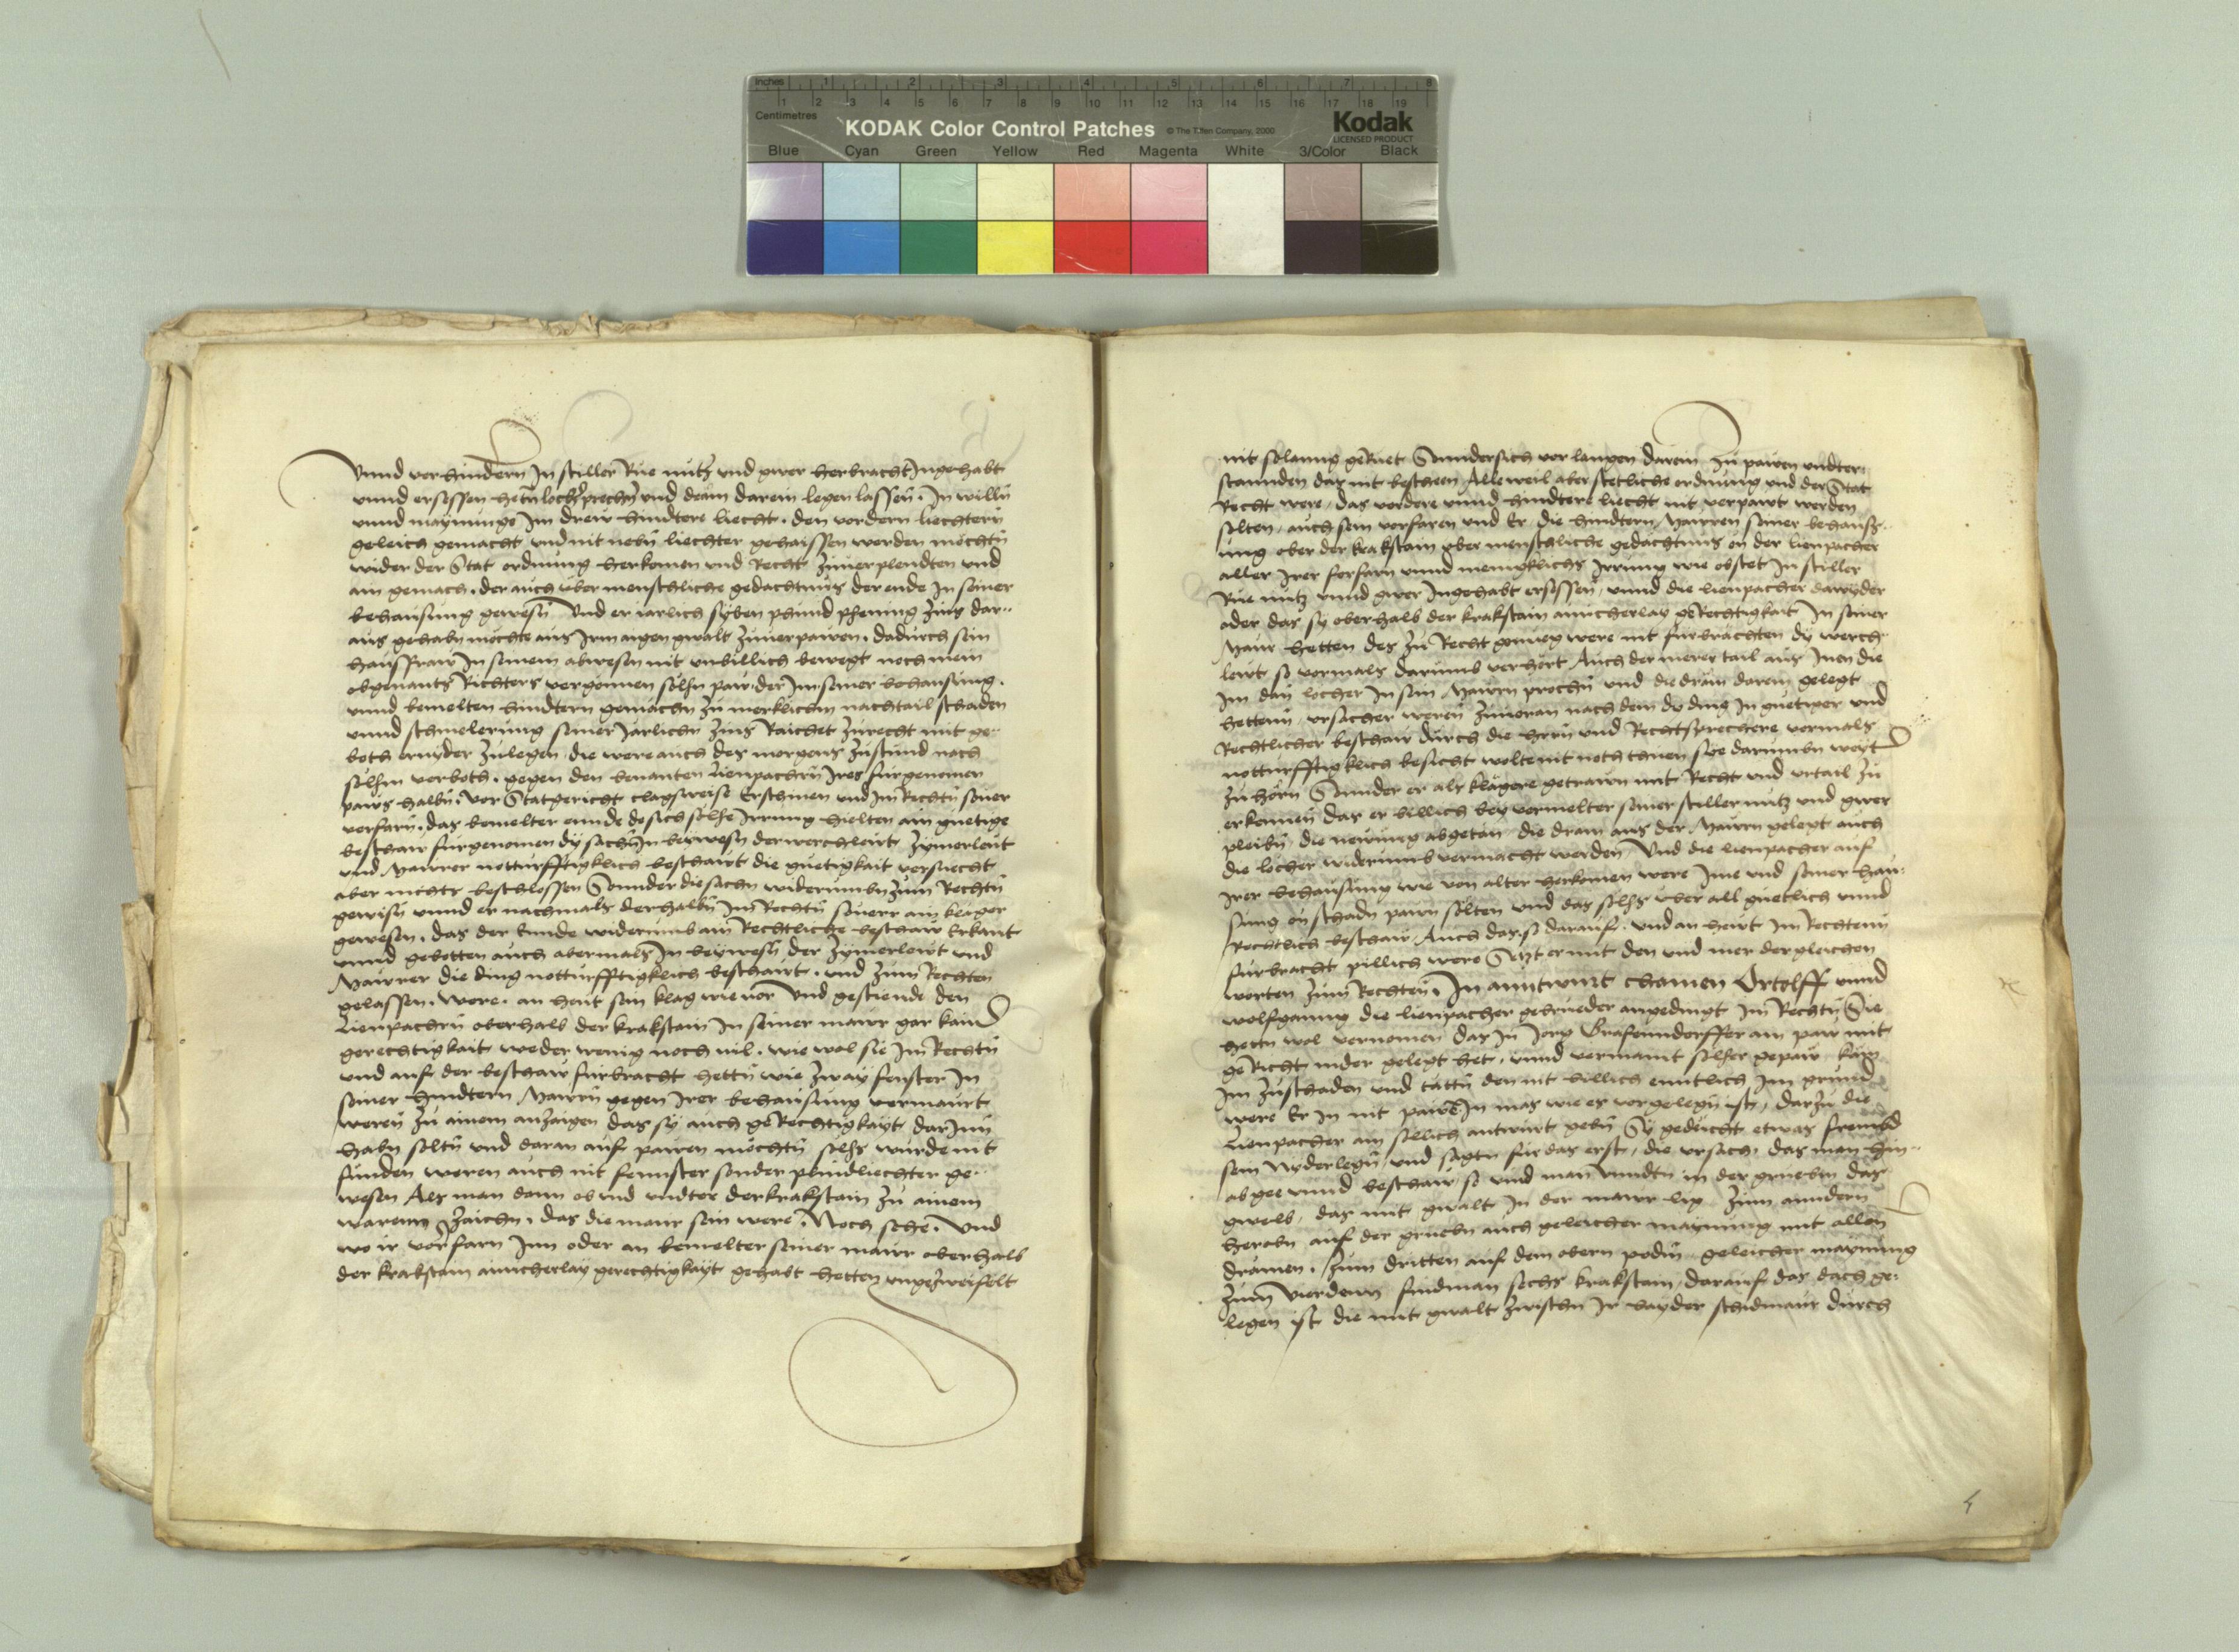 Inches 1 2 3 4 5 6 7 8
1 2 3 4 5 6 7 8 9 10 11 12 13 14 15 16 17 18 19
Centimetres
KODAK Color Control Patches © The Tiffen Company, 2000 Kodak
LICENSED PRODUCT
Blue Cyan Green Yellow Red Magenta White 3/Color Black
vnnd verhindern In stiller Rue nutz vnd gwer herbracht Ingehabt
vnnd ersessen hetn locher prechn vnd dram darein legen lassen. In willn
vnnd maynunge Im drew hindtere liecht. den vordern liechtern
geleich gemacht vnd nit nebn liechter gehaissen werden mochtn
wider der Stat ordnung herkomen vnd Recht zuuerplendten vnd
ain gemach. der auch vber menschliche gedachtnus der ende In seiner
behausung gewesn Vnd er iarlich syben phund phening zins dar¬
aus gehabn mochte aus Irm aigen gwalt zuuerpawen. dadurch sein
hausfraw In seinem abwesen nit vnbillich bewegt noch mein
obgenants Richters vergonnen solhn paw der Im seiner behausung.
vnnd bemelten hindtern gemachn zu merklichm nachtail schaden
vnnd schmelerung seiner Jarlichn zins Raichet zurecht mit ge¬
both ernyder zulegen. die were auch des morgens zustund nach
solhm verboth. gegen den benanten Lienpachern Ires furgenomen
paws halbn. vor Statgericht clagsweise Erschinen vnd Im Rechtn souer
verfarn. das bemelter ennde do sich solhe Irrung hielten ain guetige
beschaw furgenomen dy sachn In beywesn der werchleut Zymerleut
vnd Maurer notturfftigklich beschawt die guetigkait versuecht
aber nichts beschlossen Sonnder die sachn widerumbn zum Rechtn
gewisn vnnd er nachmals derhalbn Im Rechtn souerr ain klager
gewesen. das der Ennde widerumb ain Rechtliche beschaw Erkant
vnnd gebotten auch abermals In beywesn der Zymerlewt vnd
Mawrer die ding notturfftigklich beschawt. vnd zum Rechten
gelassen. Were. an heut sein klag wie vor Vnd gestiende den
Lienpachern oberhalb der krakstain In seiner mawr gar kain
gerechtigkait weder wenig noch vil. wie wol sie Im Rechtn
vnd auf der beschaw furbracht hettn wie zway fenster In
seiner hindtern Mawrn gegen Irer behausung vermaurt
weren zu ainem anzaigen das sy auch geRechtigkayt dar Inn
habn soltn vnd daran auf pawen mochtn solhs wurde nit
funden weren auch nit fennster sonder plindliechter ge¬
wesen Als man dann ob vnd vndter der krakstain zu ainem
warenn zaichn. das die maur sein were. Noch sehe. Vnd
wo ir vorfarn Inn oder an bemelter seiner mawr oberhalb
der krakstain ainicherlay gerechtigkayt gehabt hetten vngezweifelt
nit solanng geRuet Sunndersich vor langen darein zu pawen vndter¬
stannden das nit bescheen Alleweil aber stetliche ordnung vnd der Stat
Recht were, das vordere vnnd hindtere liecht nit verpawt werden
solten, auch sein vorfaren vnd Er die hindtern Mawren seiner behaus¬
ung ober der krakstain vber menschliche gedachtnus on der Lienpacher
aller Irer forfarn vnnd menigklichs Irrung wie obstet In stiller
Rue nutz vnnd gwer Ingehabt ersessen, vnnd die Lienpacher dawyder
oder das sy oberhalb der krakstain ainicherlay geRechtigkait In seiner
Mawr hetten des zu Recht gennueg were nit furbrachten dy werch¬
lewt so vormals darumb verhort Auch der merer tail aus Inen die
Im dan locher In sein Mawrn prochn vnd die dram darein gelegt
hettenn, vrsacher weren zuuoran nach dem dy ding In guetiger vnd
Rechtlicher beschaw durch die herrn vnd Rechtsprechere vormals
notturfftigklich besicht wolte nit noth thuen sie darumben weyt
zu horn Sunnder er als klagere getrawn mit Recht vnd vrtail zu
erkennen das er billich bey vermelter seiner stiller nutz vnd gwer
pleibn, die newung abgetan, die dram aus der Mawrn gelegt auch
die locher widerumb vermacht werden Vnd die Lienpacher auf
Irer behausung wie von alter herkomen were Ime vnd seiner hau¬
sung on schadn pawn solten vnd das solhs vber all guetlich vnnd
Rechtlich beschaw. Auch das so darauf. vnd an hewt Im Rechtenn
furbracht pillich were Setzt er mit den vnd mer der gleichen
worten zum Rechten. In anntwurt chamen Ortolff vnnd
wolfganng die Lienpacher gebrueder angedingt Im Rechtn Sie
hettn wol vernomen das In Jorg Grafenndorffer ain paw mit
geRicht nider gelegt het. vnnd vermaint solher gepaw kam
Im zuschaden vnd tattn den nit billich enntlich Im grund
were Er In nit pawen In mas wie es vorgelegn ist, darzu die
Lienpacher ain sollich antwurt gebn Sy geducht etwas frembd
sein Nyderlegn, vnd sagtn fur das erst, die vrsach. das man hin¬
ab gee vnnd beschaw so vind man vnndtn in der gruebm das
gwelb, das mit gwalt In der mawr lig Zum anndern
herobn auf der gruebn auch geleicher maynung mit allen
dramen. Zum dritten auf dem obern podn geleicher maynung
Zum vierdenn findman sechs krakstain, darauf das dach ge¬
legen ist die mit gwalt zwischn Ir bayder schidmaur durch